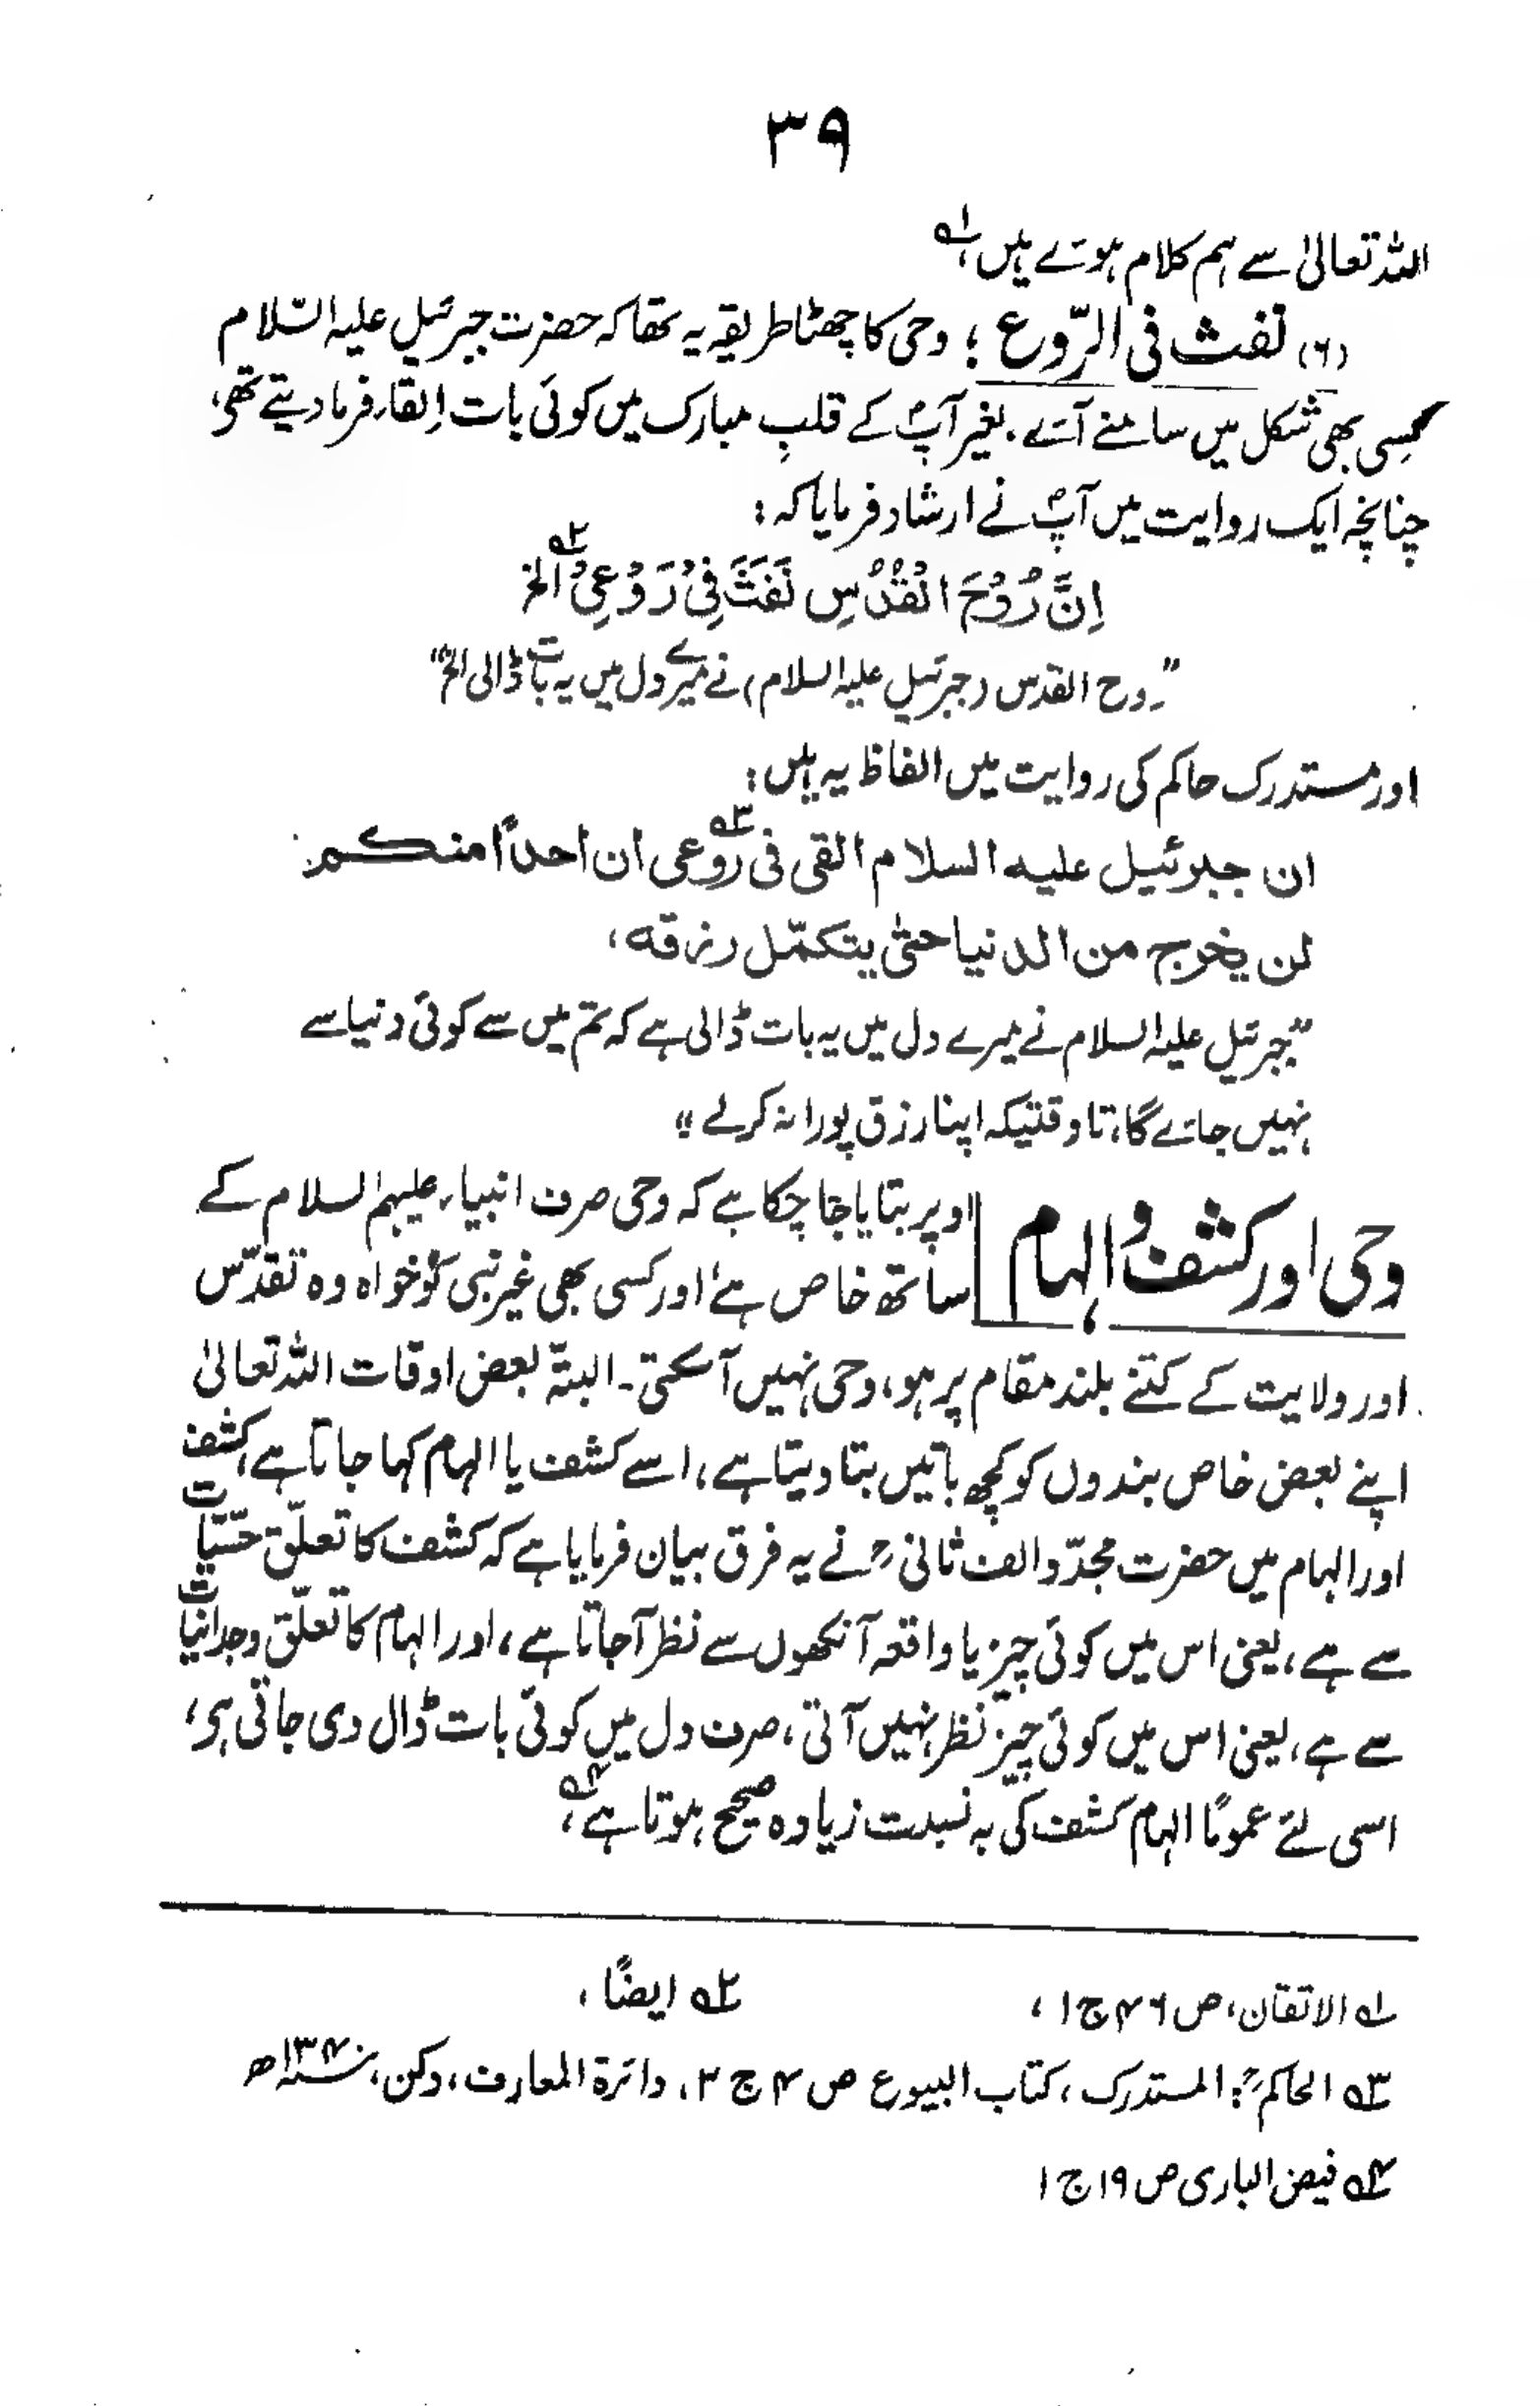 ۳۹
اللہ تعالیٰ سے ہم کلام ہوئے ہیں لہ
(۶) نفث فی الرّوع ؛ وحی کا چھٹا طریقہ یہ تھا کہ حضرت جبرئیل علیہ السّلام
کسِی بھی شکل میں سامنے آئے بغیر آپؐ کے قلبِ مبارک میں کوئی بات اِلقاء فرما دیتے تھی،
چنانچہ ایک روایت میں آپؐ نے ارشاد فرمایا کہ :
اِنَّ رُوْحَ الْقُدُسِ نَفَثَ فِیْ رَوْعِیْ الخ ۲ہ
”روح القدس (جبرئیل علیہ السلام) نے میرے دل میں یہ بات ڈالی الخ“
اور مستدرک حاکم کی روایت میں الفاظ یہ ہیں :
ان جبرئیل علیہ السلام القی فی روعی ۳ہ ان احداً منکم
لن یخرج من الدنیا حتیٰ یتکمّل رزقہ،
”جبرئیل علیہ السلام نے میرے دل میں یہ بات ڈالی ہے کہ تم میں سے کوئی دنیا سے
نہیں جائے گا، تاوقتیکہ اپنا رزق پورا نہ کرلے“
وحی اور کشف و الہام
اوپر بتایا جا چکا ہے کہ وحی صرف انبیاء علیہم السلام کے
ساتھ خاص ہے، اور کسی بھی غیر نبی کو خواہ وہ تقدّس
اور ولایت کے کتنے بلند مقام پر ہو، وحی نہیں آسکتی۔ البتہّ بعض اوقات اللہ تعالیٰ
اپنے بعض خاص بندوں کو کچھ باتیں بتا دیتا ہے، اسے کشف یا الہام کہا جاتا ہے، کشف
اور الہام میں حضرت مجدّد الف ثانیؒ نے یہ فرق بیان فرمایا ہے کہ کشف کا تعلّق حسّیّات
سے ہے، یعنی اس میں کوئی چیز یا واقعہ آنکھوں سے نظر آجاتا ہے، اور الہام کا تعلّق وجدانیات
سے ہے، یعنی اس میں کوئی چیز نظر نہیں آتی، صرف دل میں کوئی بات ڈال دی جاتی ہی،
اسی لئے عموماً الہام کشف کی بہ نسبت زیادہ صحیح ہوتا ہے ۴ہ،
لہ الاتقان، ص ۴۶ ج ۱،
۲ہ ایضاً،
۳ہ الحاکمؒ: المستدرک، کتاب البیوع ص ۴ ج ۲، دائرة المعارف، دکن، ۱۳۴۰ھ
۴ہ فیض الباری ص ۱۹ ج ۱